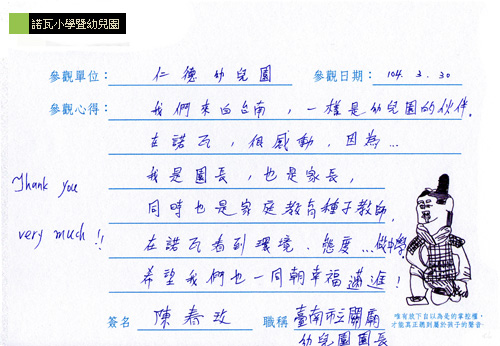 諾瓦小學暨幼兒園
參觀單位：仁德幼兒園 參觀日期：104. 3. 30
參觀心得：我們來自台南，一樣是幼兒園的伙伴。
在諾瓦，很感動，因為…
我是園長，也是家長，
同時也是家庭教育種子教師，
在諾瓦看到環境、態度…做中學
希望我們也一同朝幸福滿涯！
Thank you
very much!!
唯有放下自以為是的掌控權，
才能真正聽到屬於孩子的聲音。
簽名 陳春 職稱 臺南市立關廟
幼兒園園長